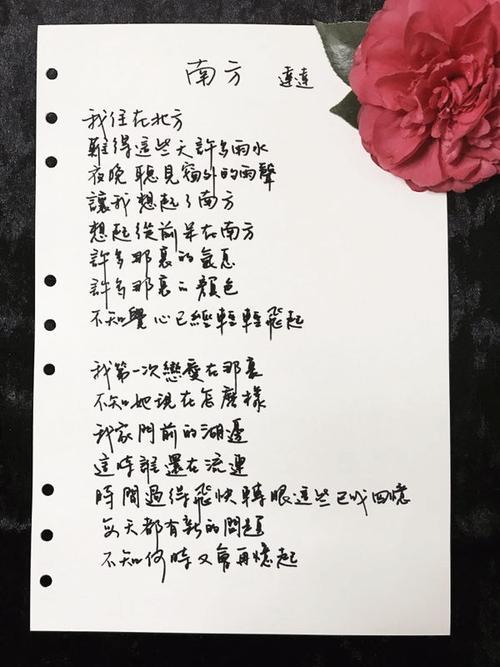 南方 達達
我住在北方
難得這些天許多雨水
夜晚聽見窗外的雨聲
讓我想起了南方
想起從前呆在南方
許多那裏的氣息
許多那裏的顏色
不知覺心已經輕輕飛起
我第一次戀愛在那裏
不知她現在怎麼樣
我家門前的湖邊
這時誰還在流連
時間過得飛快轉眼這些已成回憶
每天都有新的問題
不知何時又會再憶起